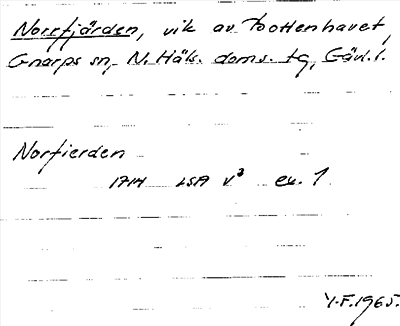 Norrfjärden, vik av Bottenhavet,
Gnarps sn, N. Häls. doms. tg, Gävl. l.
Norfierden
1714 LSA V³ ex. 1
Y.F. 1965.